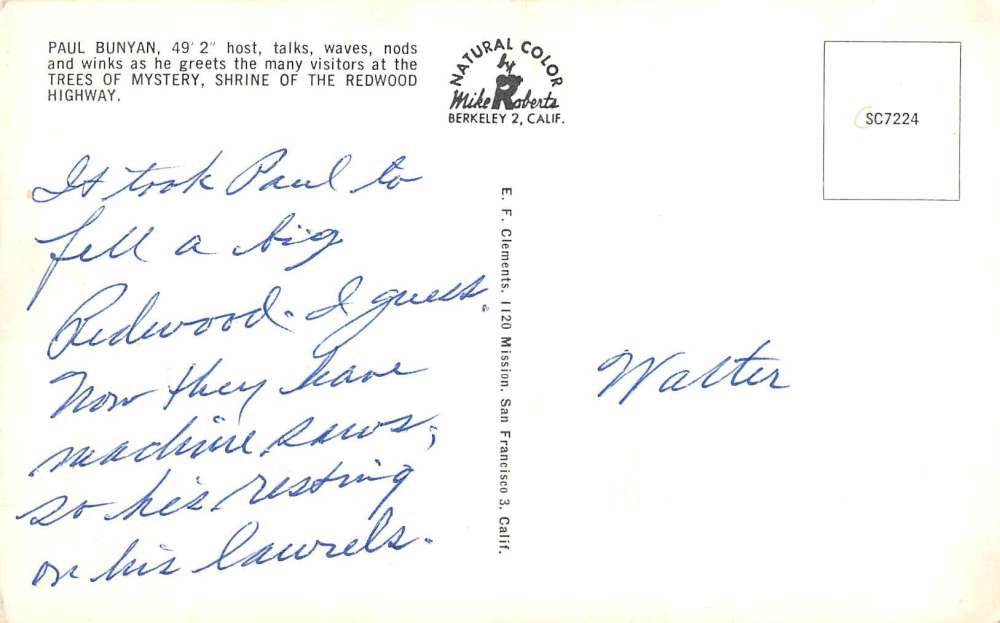 PAUL BUNYAN, 49' 2" host, talks, waves, nods
and winks as he greets the many visitors at the
TREES OF MYSTERY, SHRINE OF THE REDWOOD
HIGHWAY.
It took Paul to
fell a big
Redwood. I guess.
Now they have
machine saws,
so he's resting
on his laurels.
NATURAL COLOR
by
Mike Roberts
BERKELEY 2, CALIF.
E. F. Clements, 1120 Mission, San Francisco 3, Calif.
SC7224
Walter